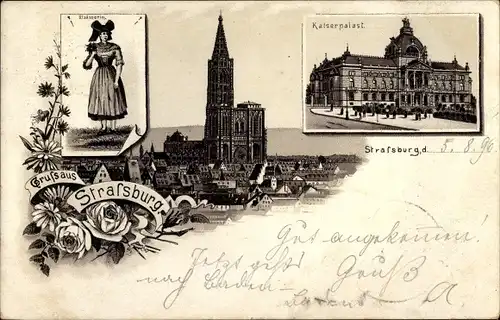 Elsässerin.
Kaiserpalast.
Strafsburg, d. 5.8.96
Gruſs aus
Strafsburg
Gut angekommen!
Jetzt geht's
nach Baden-
Baden Gruß
A